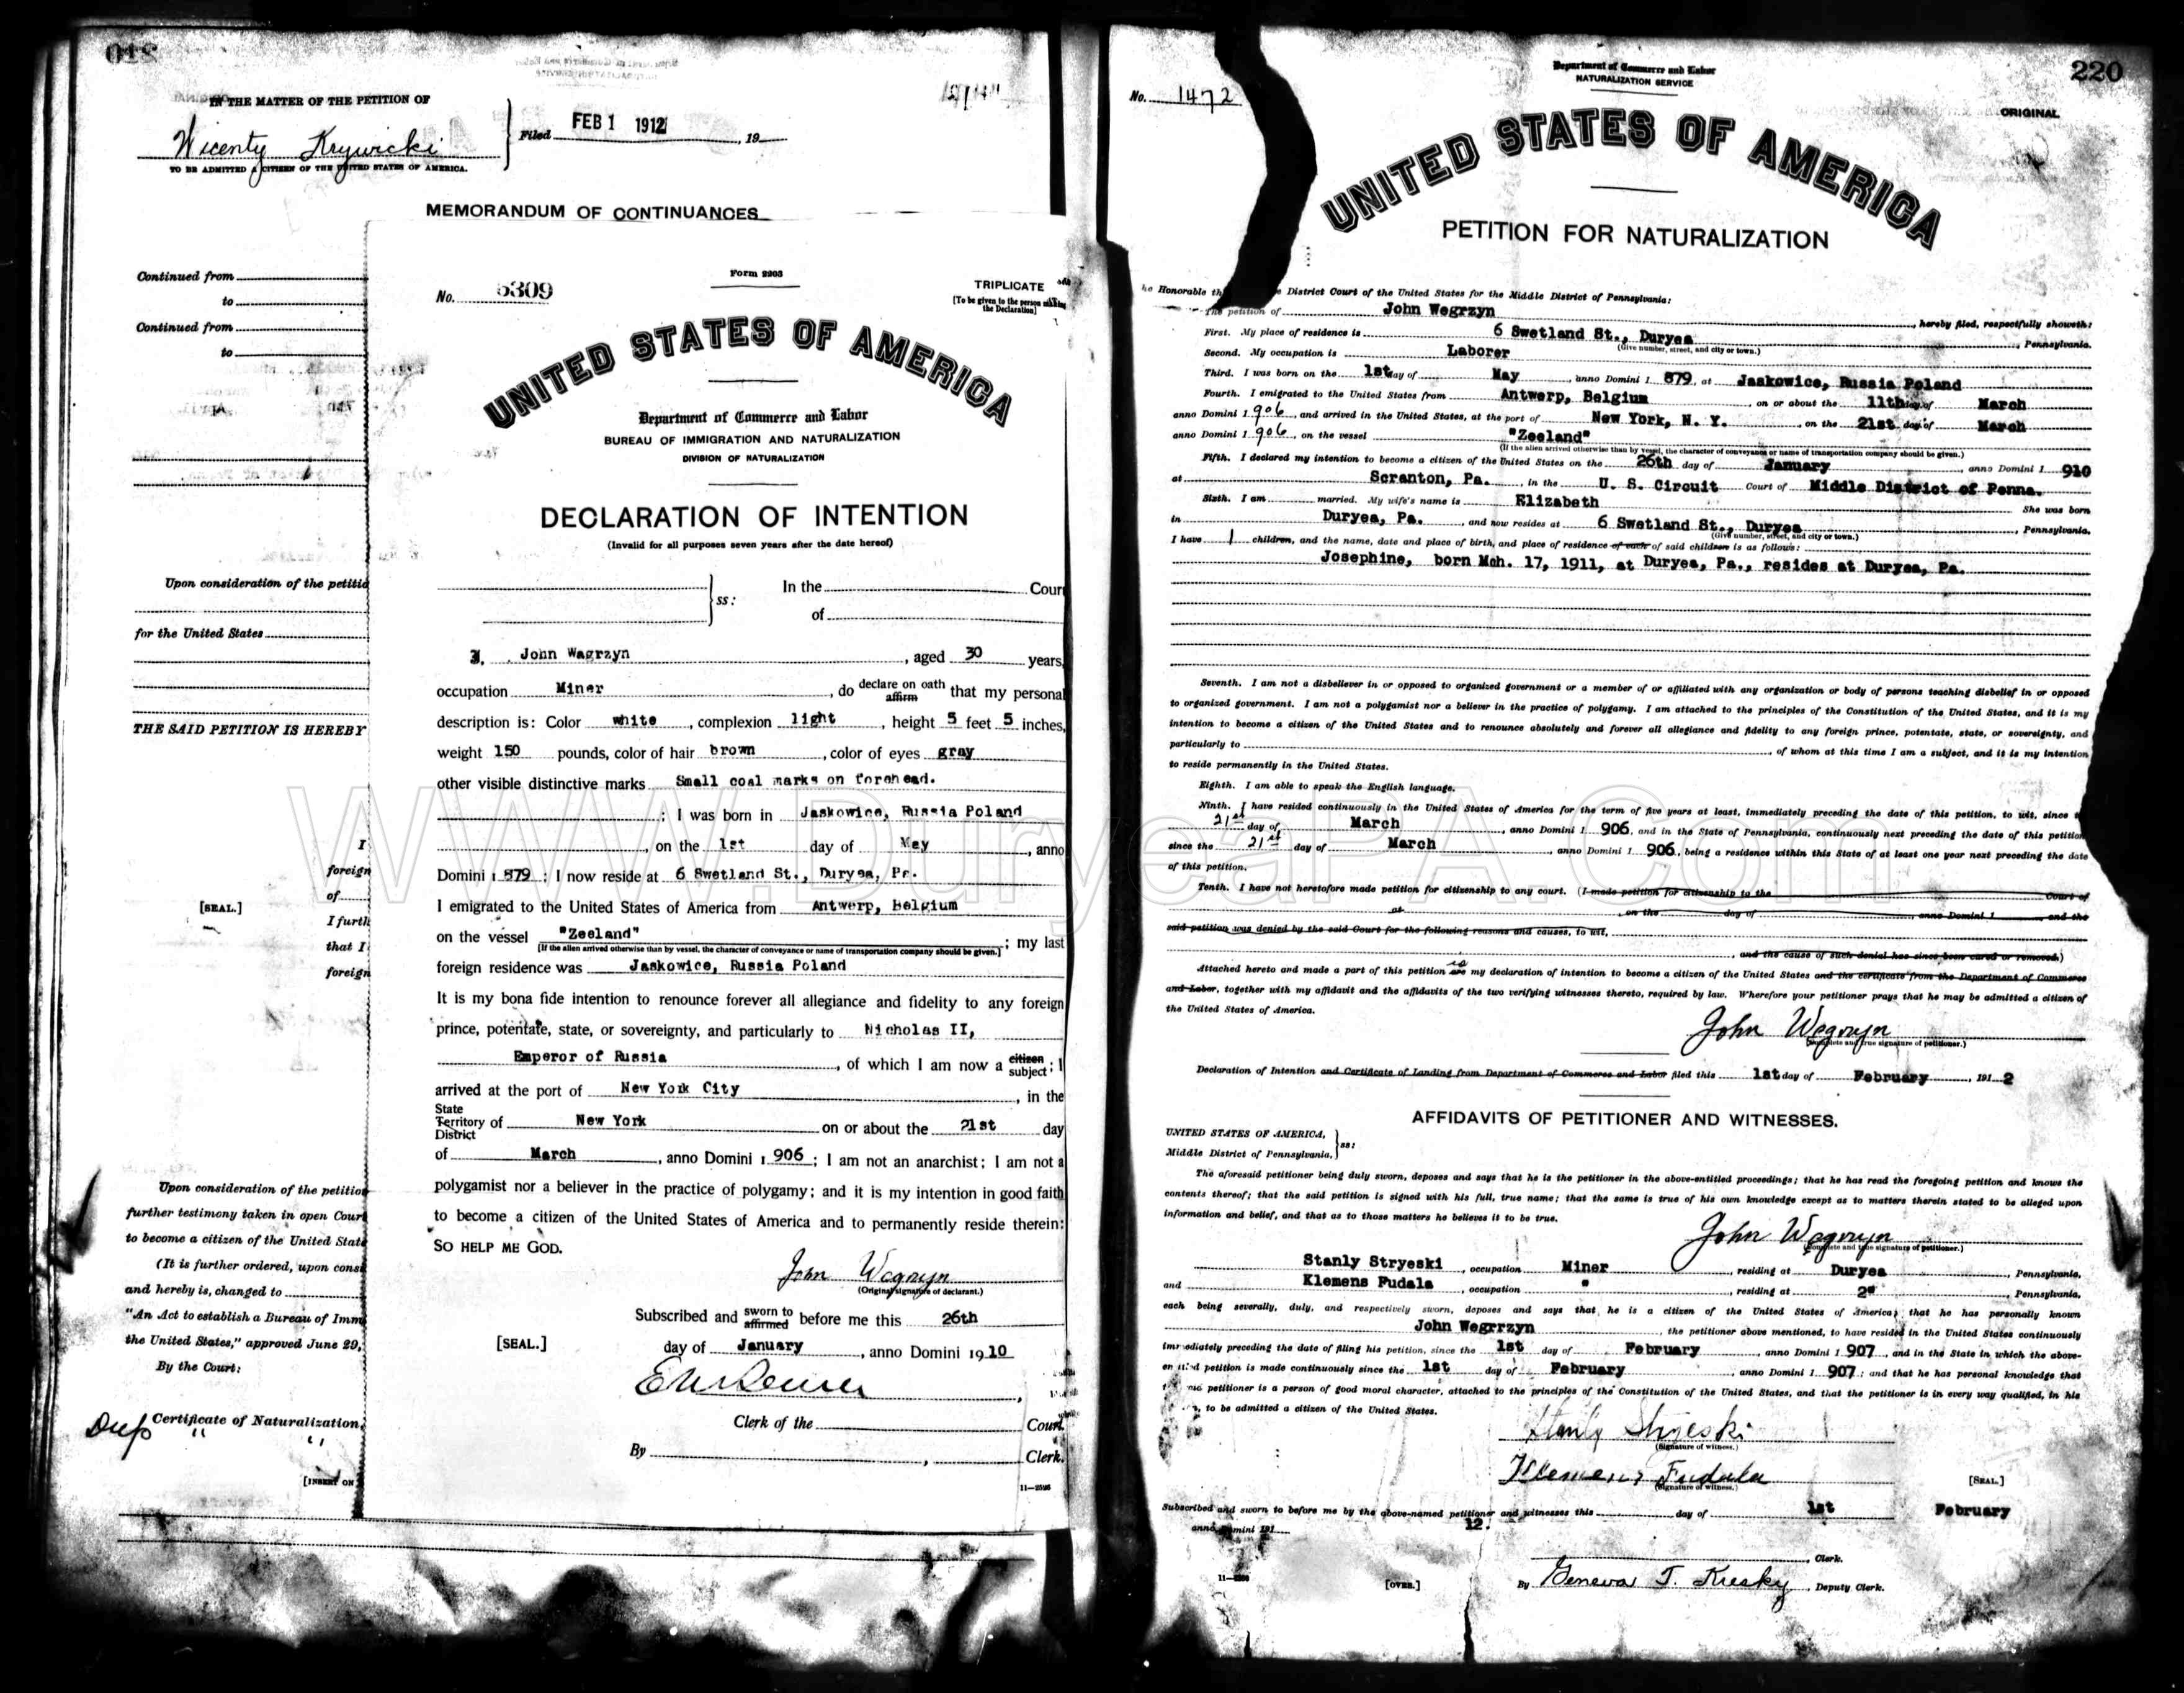 IN THE MATTER OF THE PETITION OF
Wicenty Krywicki
TO BE ADMITTED A CITIZEN OF THE UNITED STATES OF AMERICA.
Filed FEB 1 1912, 19
MEMORANDUM OF CONTINUANCES
Continued from
to
Continued from
to
Upon consideration of the petitio
for the United States
THE SAID PETITION IS HEREBY
I
foreign
of
[SEAL.]
I furth
that I
foreign
Upon consideration of the petition
further testimony taken in open Court
to become a citizen of the United State
(It is further ordered, upon consi
and hereby is, changed to
"An Act to establish a Bureau of Imm
the United States," approved June 29,
By the Court:
Dup Certificate of Naturalization,
[INSERT ON
No. 5309
Form 2203
TRIPLICATE
[To be given to the person making
the Declaration]
UNITED STATES OF AMERICA
Department of Commerce and Labor
BUREAU OF IMMIGRATION AND NATURALIZATION
DIVISION OF NATURALIZATION
DECLARATION OF INTENTION
(Invalid for all purposes seven years after the date hereof)
ss:
In the Cour
of
I, John Wagrzyn, aged 30 years,
occupation Miner, do declare on oath affirm that my personal
description is: Color white, complexion light, height 5 feet 5 inches,
weight 150 pounds, color of hair brown, color of eyes gray
other visible distinctive marks Small coal marks on forehead.
; I was born in Jaskowice, Russia Poland
, on the 1st day of May, anno
Domini 1 879; I now reside at 6 Swetland St., Duryea, Pa.
I emigrated to the United States of America from Antwerp, Belgium
on the vessel "Zeeland"; my last
[If the alien arrived otherwise than by vessel, the character of conveyance or name of transportation company should be given.]
foreign residence was Jaskowice, Russia Poland
It is my bona fide intention to renounce forever all allegiance and fidelity to any foreign
prince, potentate, state, or sovereignty, and particularly to Nicholas II,
Emperor of Russia, of which I am now a citizen subject; I
arrived at the port of New York City, in the
State Territory District of New York on or about the 21st day
of March, anno Domini 1 906; I am not an anarchist; I am not a
polygamist nor a believer in the practice of polygamy; and it is my intention in good faith
to become a citizen of the United States of America and to permanently reside therein:
SO HELP ME GOD.
John Wegrzyn
(Original signature of declarant.)
Subscribed and sworn to affirmed before me this 26th
[SEAL.]
day of January, anno Domini 1910
Clerk of the Court.
By , Clerk.
11—2526
220
Department of Commerce and Labor
NATURALIZATION SERVICE
No. 1472
ORIGINAL
UNITED STATES OF AMERICA
PETITION FOR NATURALIZATION
he Honorable th e District Court of the United States for the Middle District of Pennsylvania:
The petition of John Wegrzyn, hereby filed, respectfully showeth:
First. My place of residence is 6 Swetland St., Duryea, Pennsylvania.
(Give number, street, and city or town.)
Second. My occupation is Laborer
Third. I was born on the 1st day of May, anno Domini 1 879, at Jaskowice, Russia Poland
Fourth. I emigrated to the United States from Antwerp, Belgium on or about the 11th day of March
anno Domini 1 906, and arrived in the United States, at the port of New York, N. Y., on the 21st day of March
anno Domini 1 906, on the vessel "Zeeland"
(If the alien arrived otherwise than by vessel, the character of conveyance or name of transportation company should be given.)
Fifth. I declared my intention to become a citizen of the United States on the 26th day of January, anno Domini 1 910
at Scranton, Pa., in the U. S. Circuit Court of Middle District of Penna.
Sixth. I am married. My wife's name is Elizabeth She was born
in Duryea, Pa. and now resides at 6 Swetland St., Duryea, Pennsylvania.
(Give number, street, and city or town.)
I have 1 children, and the name, date and place of birth, and place of residence of each of said children is as follows:
Josephine, born Mch. 17, 1911, at Duryea, Pa., resides at Duryea, Pa.
Seventh. I am not a disbeliever in or opposed to organized government or a member of or affiliated with any organization or body of persons teaching disbelief in or opposed
to organized government. I am not a polygamist nor a believer in the practice of polygamy. I am attached to the principles of the Constitution of the United States, and it is my
intention to become a citizen of the United States and to renounce absolutely and forever all allegiance and fidelity to any foreign prince, potentate, state, or sovereignty, and
particularly to , of whom at this time I am a subject, and it is my intention
to reside permanently in the United States.
Eighth. I am able to speak the English language.
Ninth. I have resided continuously in the United States of America for the term of five years at least, immediately preceding the date of this petition, to wit, since t
21st day of March, anno Domini 1 906, and in the State of Pennsylvania, continuously next preceding the date of this petition
since the 21st day of March, anno Domini 1 906, being a residence within this State of at least one year next preceding the date
of this petition.
Tenth. I have not heretofore made petition for citizenship to any court. (I made petition for citizenship to the Court of
at , on the day of , anno Domini 1 and the
said petition was denied by the said Court for the following reasons and causes, to wit,
, and the cause of such denial has since been cured or removed.)
Attached hereto and made a part of this petition are is my declaration of intention to become a citizen of the United States and the certificate from the Department of Commerce
and Labor, together with my affidavit and the affidavits of the two verifying witnesses thereto, required by law. Wherefore your petitioner prays that he may be admitted a citizen of
the United States of America.
John Wegrzyn
(Complete and true signature of petitioner.)
Declaration of Intention and Certificate of Landing from Department of Commerce and Labor filed this 1st day of February, 191 2
AFFIDAVITS OF PETITIONER AND WITNESSES.
UNITED STATES OF AMERICA,
Middle District of Pennsylvania, ss:
The aforesaid petitioner being duly sworn, deposes and says that he is the petitioner in the above-entitled proceedings; that he has read the foregoing petition and knows the
contents thereof; that the said petition is signed with his full, true name; that the same is true of his own knowledge except as to matters therein stated to be alleged upon
information and belief, and that as to those matters he believes it to be true.
John Wegrzyn
(Complete and true signature of petitioner.)
Stanly Stryeski, occupation Miner, residing at Duryea, Pennsylvania,
and Klemens Fudala, occupation ", residing at 2", Pennsylvania,
each being severally, duly, and respectively sworn, deposes and says that he is a citizen of the United States of America; that he has personally known
John Wegrrzyn, the petitioner above mentioned, to have resided in the United States continuously
immediately preceding the date of filing his petition, since the 1st day of February, anno Domini 1 907, and in the State in which the above-
entitled petition is made continuously since the 1st day of February, anno Domini 1 907; and that he has personal knowledge that
petitioner is a person of good moral character, attached to the principles of the Constitution of the United States, and that the petitioner is in every way qualified, in his
, to be admitted a citizen of the United States.
Stanly Stryeski
(Signature of witness.)
Klemens Fudala
(Signature of witness.)
[SEAL.]
Subscribed and sworn to before me by the above-named petitioner and witnesses this day of 1st February
anno Domini 191 12.
, Clerk.
11—
[OVER.]
By Geneva T. Kresky, Deputy Clerk.
www.DuryeaPA.Com